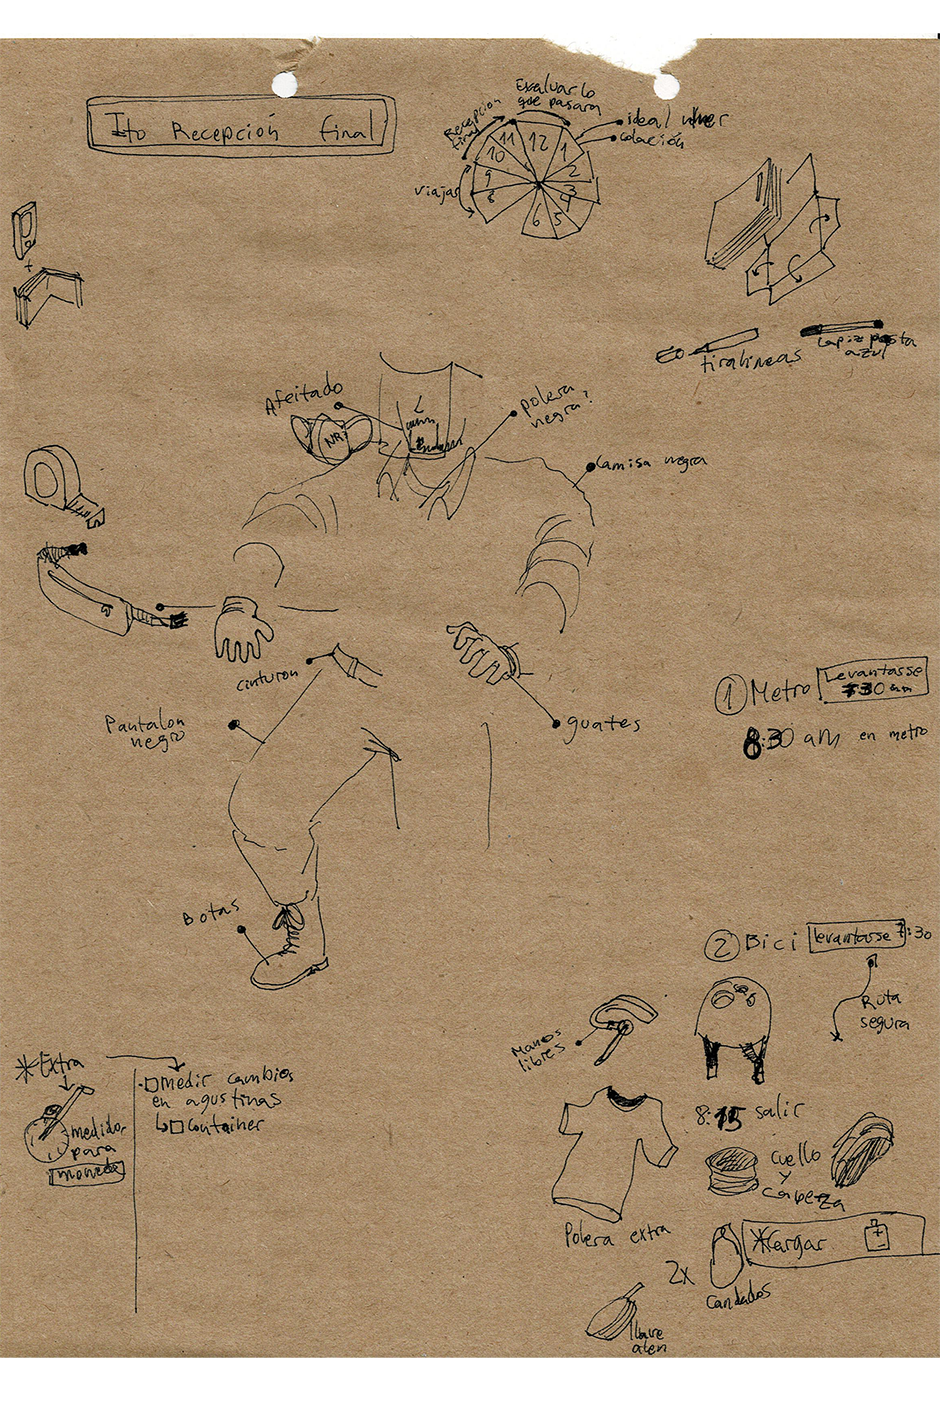 Ito Recepción final
Evaluar lo
que pasara
Recepcion
final
ideal
colación
viajas
11 12 1
10 2
9 3
8 4
6 5
tiralineas
Lapiz pasta
azul
Afeitado
NR
polera
negra?
Camisa negra
cinturon
Pantalon
negro
guates
1 Metro Levantasse
7:30 am
8:30 am en metro
Botas
2 Bici levantasse 7:30
Ruta
segura
Manos
libres
*Extra
medidor
para
moneda
Medir cambios
en agustinas
Container
8:15 salir
cuello
y
cabeza
Polera extra
*Cargar
+
-
2x
candados
llave
alen